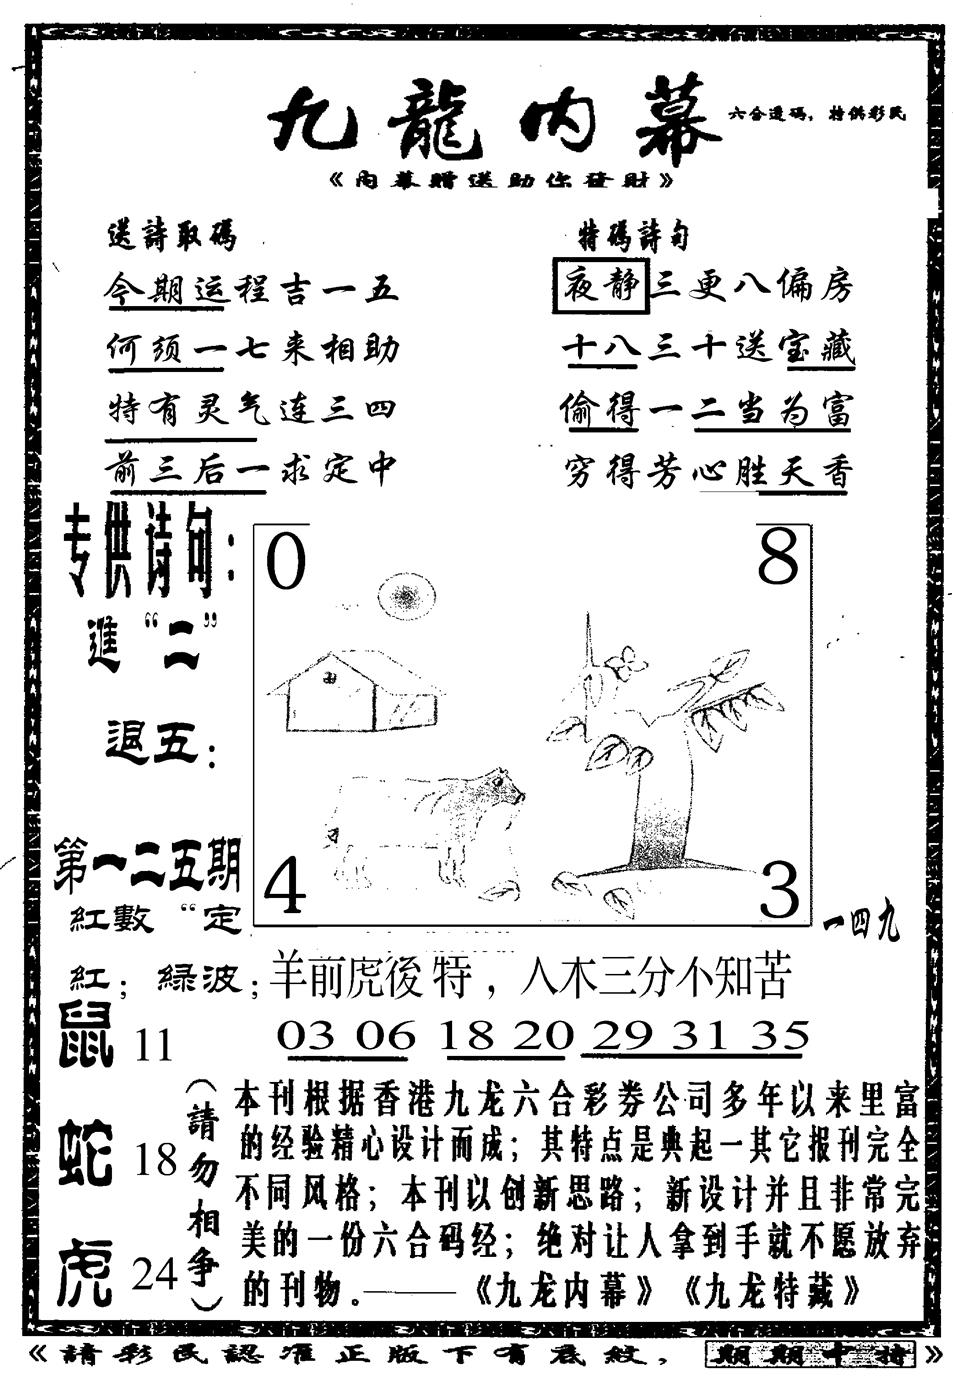 九龍内幕
六合透码，特供彩民
《内幕贈送助你發財》
送詩取碼
今期运程吉一五
何须一七来相助
特有灵气连三四
前三后一求定中
特碼詩句
夜静三更八偏房
十八三十送宝藏
偷得一二当为富
穷得芳心胜天香
专供诗句：
進“二”
退五：
第一二五期
紅數“定
紅；綠波；
0
8
4
3
一四九
羊前虎後特，人木三分小知苦
03 06 18 20 29 31 35
鼠 11
蛇 18
虎 24
（請勿相争）
本刊根据香港九龙六合彩券公司多年以来里富
的经验精心设计而成；其特点是典起一其它报刊完全
不同风格；本刊以创新思路；新设计并且非常完
美的一份六合码经；绝对让人拿到手就不愿放弃
的刊物。——《九龙内幕》《九龙特藏》
《請彩民認准正版下有底紋，期期中特》